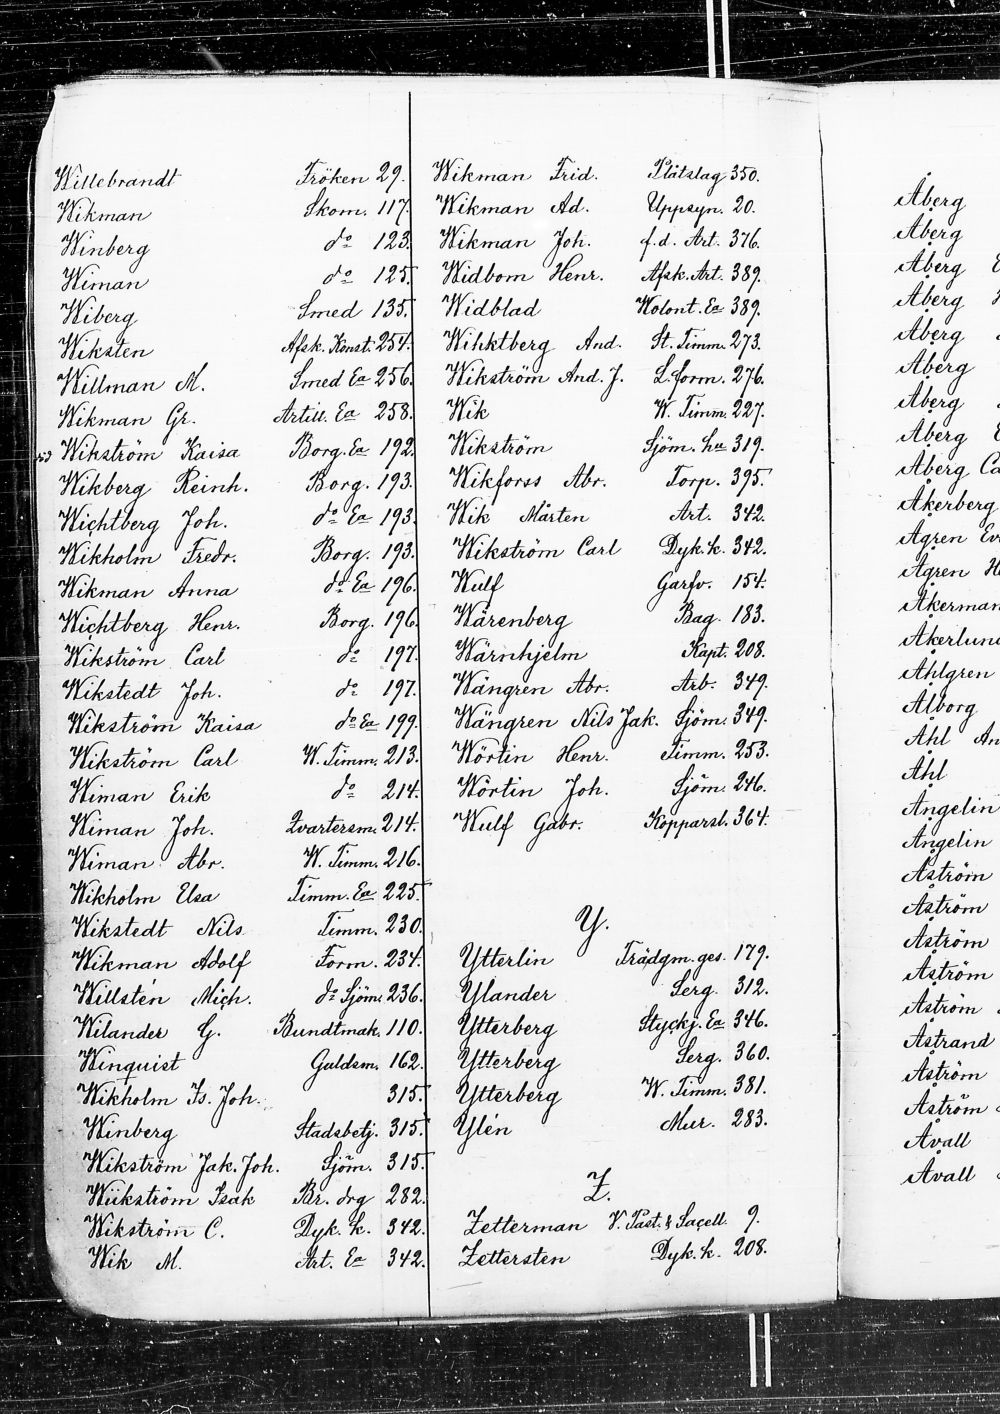 Willebrandt Fröken 29.
Wikman Skom. 117.
Winberg do 123.
Wiman do 125.
Wiberg Smed 135.
Wiksten Afsk. Konst. 254.
Willman M. Smed Ea 256.
Wikman Gr. Artill. Ea 258.
Wikström Kaisa Borg. Ea 192.
Wikberg Reinh. Borg. 193.
Wichtberg Joh. do Ea 193.
Wikholm Fredr. Borg. 193.
Wikman Anna do Ea 196.
Wichtberg Henr. Borg. 196.
Wikström Carl do 197.
Wikstedt Joh. do 197.
Wikström Kaisa do Ea 199.
Wikström Carl W. Timm. 213.
Wiman Erik do 214.
Wiman Joh. Qvartersm. 214.
Wiman Abr. W. Timm. 216.
Wikholm Elsa Timm. Ea 225.
Wikstedt Nils Timm. 230.
Wikman Adolf Form. 234.
Willstén Mich. do Sjöm. 236.
Wilander G. Bundtmak. 110.
Winquist Guldsm. 162.
Wikholm Is. Joh. 315.
Winberg Stadsbetj. 315.
Wikström Jak. Joh. Sjöm. 315.
Wiikström Isak Br. drg 282.
Wikström C. Dyk. k. 342.
Wik M. Art. Ea 342.
Wikman Frid. Plåtslag 350.
Wikman Ad. Uppsyn. 20.
Wikman Joh. f.d. Art. 376.
Widbom Henr. Afsk. Art. 389.
Widblad Volont. Ea 389.
Wihktberg And. St. Timm. 273.
Wikström And. J. L. form. 276.
Wik W. Timm. 227.
Wikström Sjöm. hu 319.
Wikforss Abr. Torp. 395.
Wik Mårten Art. 342.
Wikström Carl Dyk. k. 342.
Wulf Garfv. 154.
Wärenberg Bag. 183.
Wärnhjelm Kapt. 208.
Wängren Abr. Arb. 349.
Wängren Nils Jak. Sjöm. 349.
Wörtin Henr. Timm. 253.
Wörtin Joh. Sjöm. 246.
Wulf Gabr. Kopparsl. 364.
Y.
Ytterlin Trädgm. ges. 179.
Ylander Serg. 312.
Ytterberg Styckj. Ea 346.
Ytterberg Serg. 360.
Ytterberg W. Timm. 381.
Ylén Mur. 283.
Z.
Zetterman V. Past. & Sacell. 9.
Zettersten Dyk. k. 208.
Åberg
Åberg
Åberg
Åberg
Åberg
Åberg
Åberg
Åberg
Åberg Ca
Åkerberg
Ågren
Ågren
Åkerman
Åkerlund
Åhlgren
Ålborg
Åhl An
Åhl
Ångelin
Ångelin
Åström
Åström
Åström
Åström
Åström
Åstrand
Åström
Åström
Åvall
Åvall